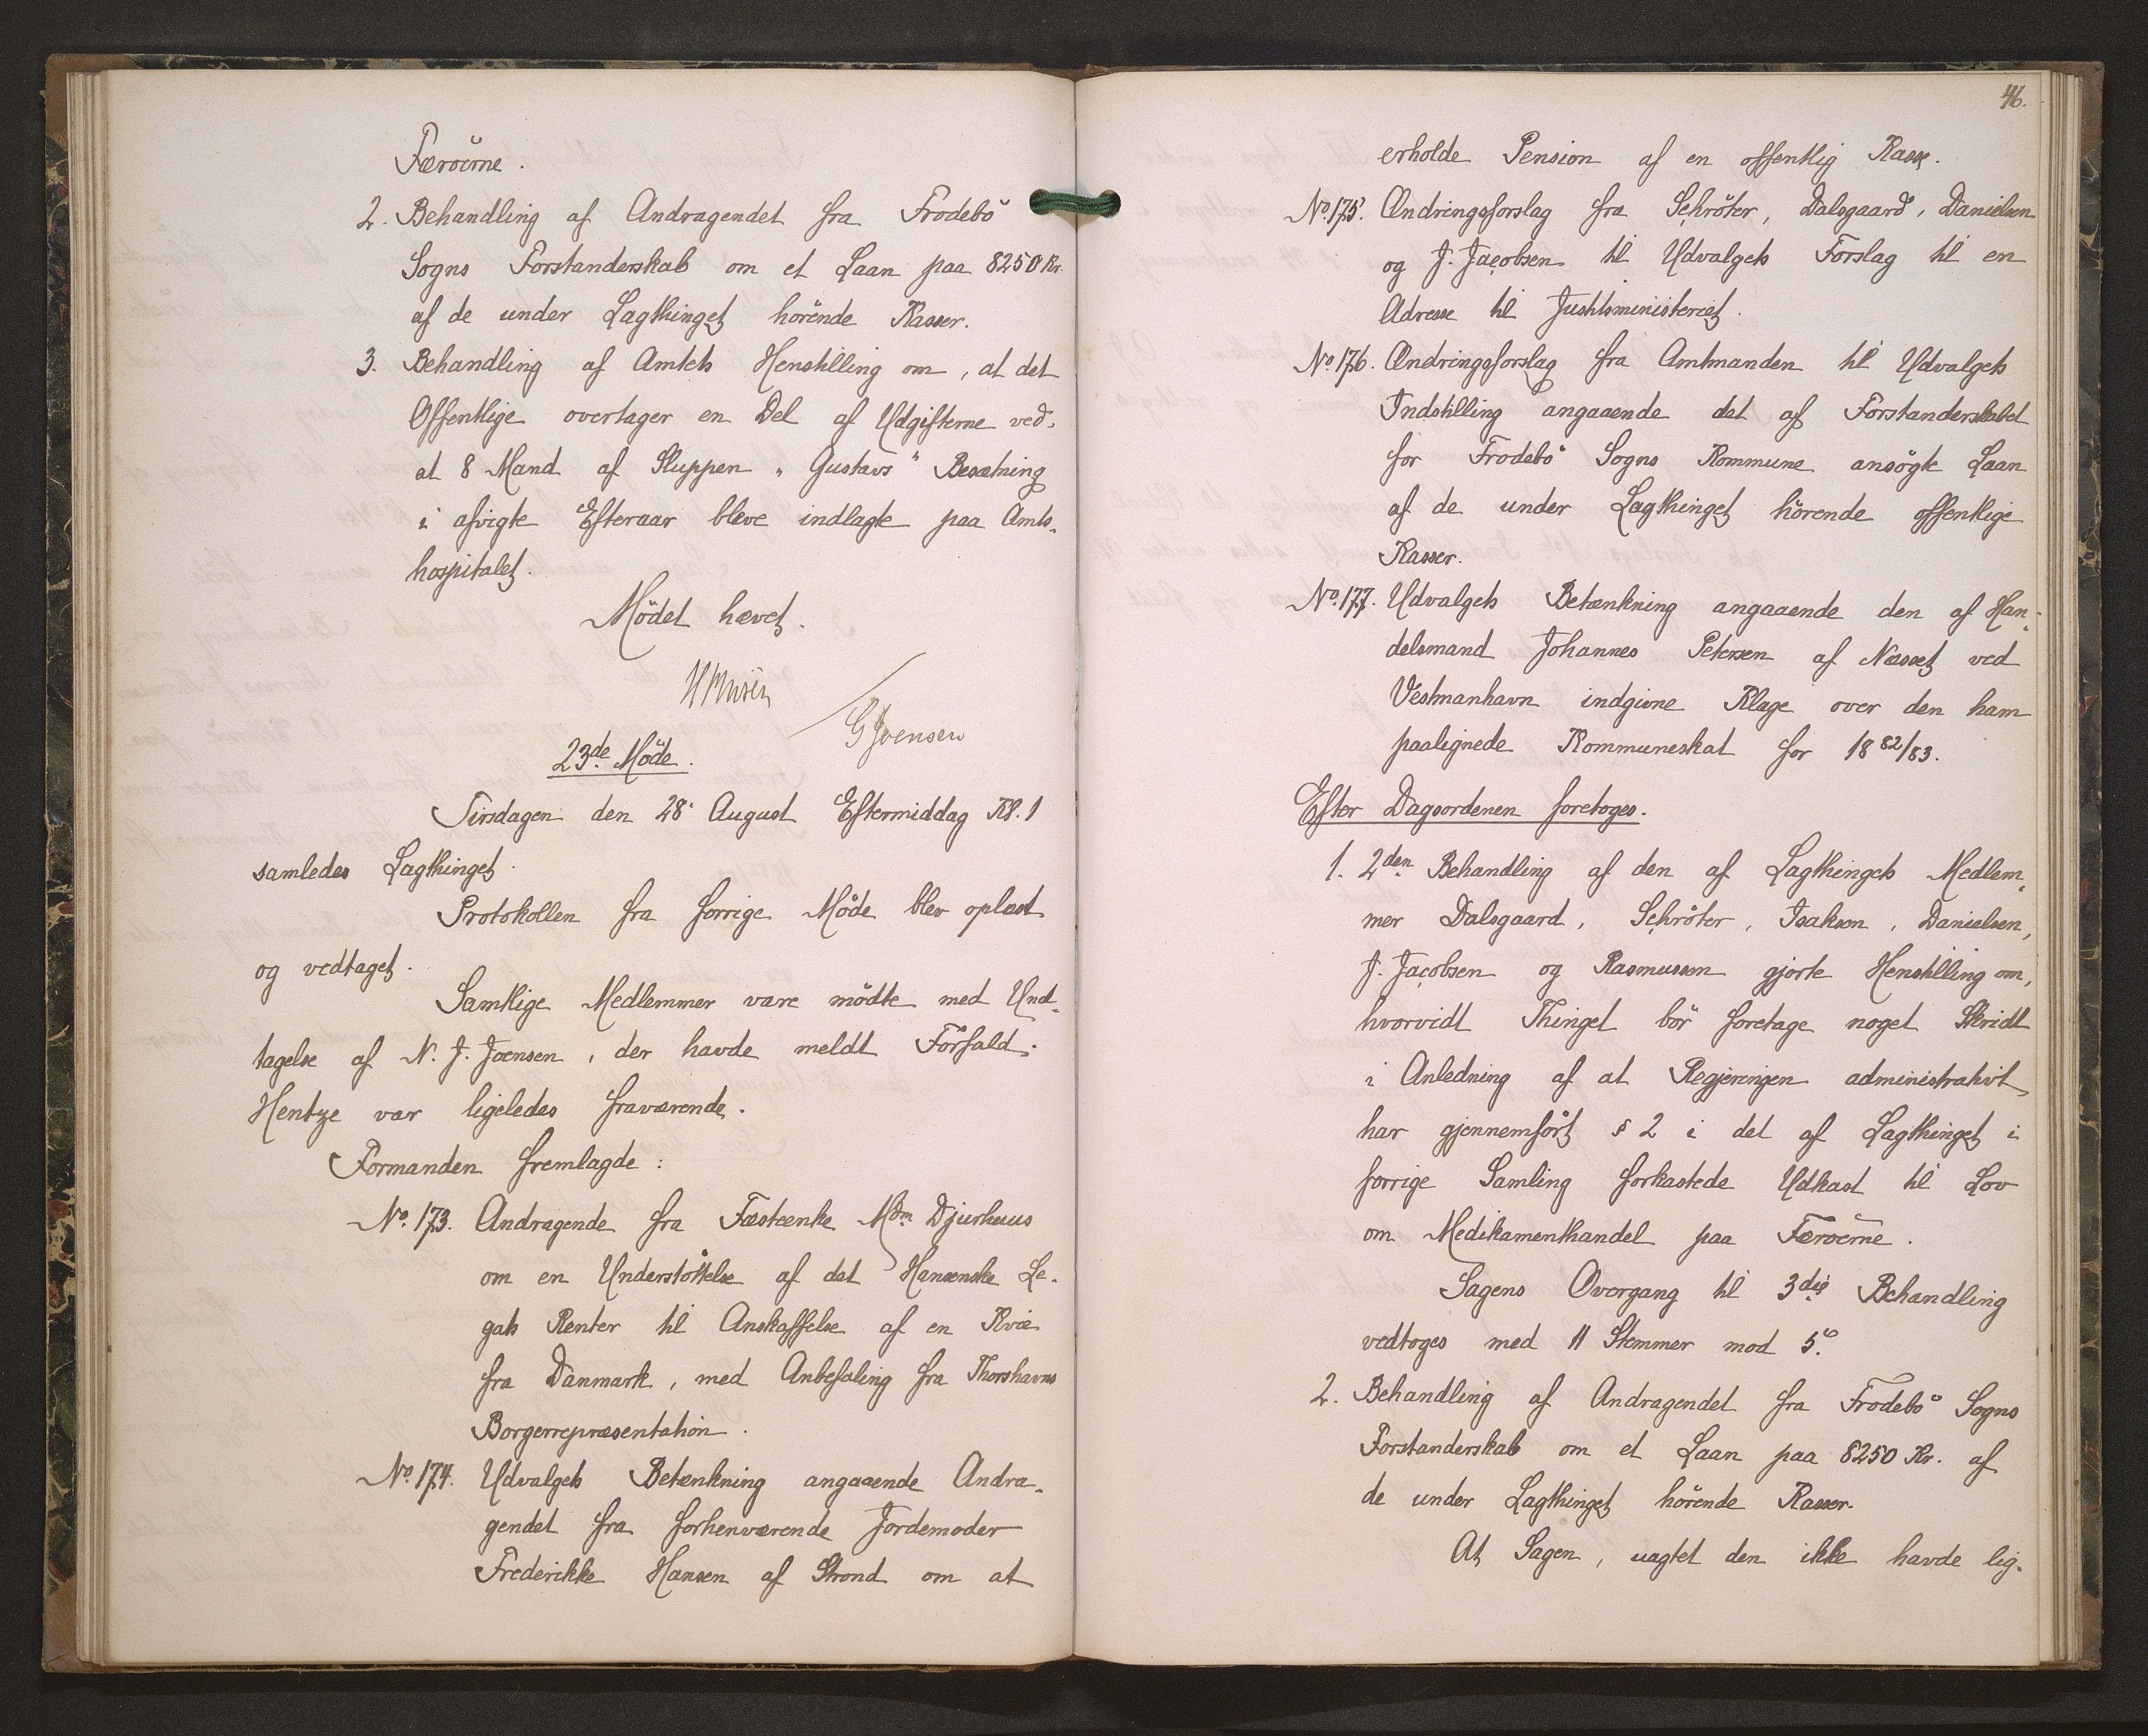 Færøerne.
2. Behandling af Andragendet fra Frodebö
Sogns Forstanderskab om et Laan paa 8250 Kr.
af de under Lagthinget hörende Kasser.
3. Behandling af Amtets Henstilling om, at det
Offentlige overtager en Del af Udgifterne ved,
at 8 Mand af Sluppen „Gustavs“ Besætning
i afvigte Efteraar bleve indlagte paa Amts-
hospitalet.
Mödet hævet.
G Joensen
23de Möde.
Tirsdagen den 28. August Eftermiddag Kl. 1
samledes Lagthinget.
Protokollen fra forrige Möde blev oplæst
og vedtaget.
Samtlige Medlemmer vare mödte med Und-
tagelse af N. J. Joensen, der havde meldt Forfald.
Hentze var ligeledes fraværende.
Formanden fremlagde:
No. 173. Andragende fra Fæsteenke Mdm Djurhuus
om en Understöttelse af det Hansenske Le-
gats Renter til Anskaffelse af en Kvie
fra Danmark, med Anbefaling fra Thorshavns
Borgerrepræsentation.
No. 174. Udvalgets Betænkning angaaende Andra-
gendet fra forhenværende Jordemoder
Frederikke Hansen af Strond om at
46.
erholde Pension af en offentlig Kasse.
No. 175. Ændringsforslag fra Schröter, Dalsgaard, Danielsen
og J. Jacobsen til Udvalgets Forslag til en
Adresse til Justitsministeriet.
No. 176. Ændringsforslag fra Amtmanden til Udvalgets
Indstilling angaaende det af Forstanderskabet
for Frodebö Sogns Kommune ansögte Laan
af de under Lagthinget hörende offentlige
Kasser.
No. 177. Udvalgets Betænkning angaaende den af Han-
delsmand Johannes Petersen af Næsset ved
Vestmanhavn indgivne Klage over den ham
paalignede Kommuneskat for 1882/83.
Efter Dagsordenen foretoges.
1. 2den Behandling af den af Lagthingets Medlem-
mer Dalsgaard, Schröter, Isaksen, Danielsen,
J. Jacobsen og Rasmussen gjorte Henstilling om,
hvorvidt Thinget bör foretage noget Skridt
i Anledning af at Regjeringen administrativt
har gjennemfört § 2 i det af Lagthinget i
forrige Samling forkastede Udkast til Lov
om Medikamenthandel paa Færöerne.
Sagens Overgang til 3die Behandling
vedtoges med 11 Stemmer mod 5.
2. Behandling af Andragendet fra Frodebö Sogns
Forstanderskab om et Laan paa 8250 Kr. af
de under Lagthinget hörende Kasser.
At Sagen, uagtet den ikke havde lig-